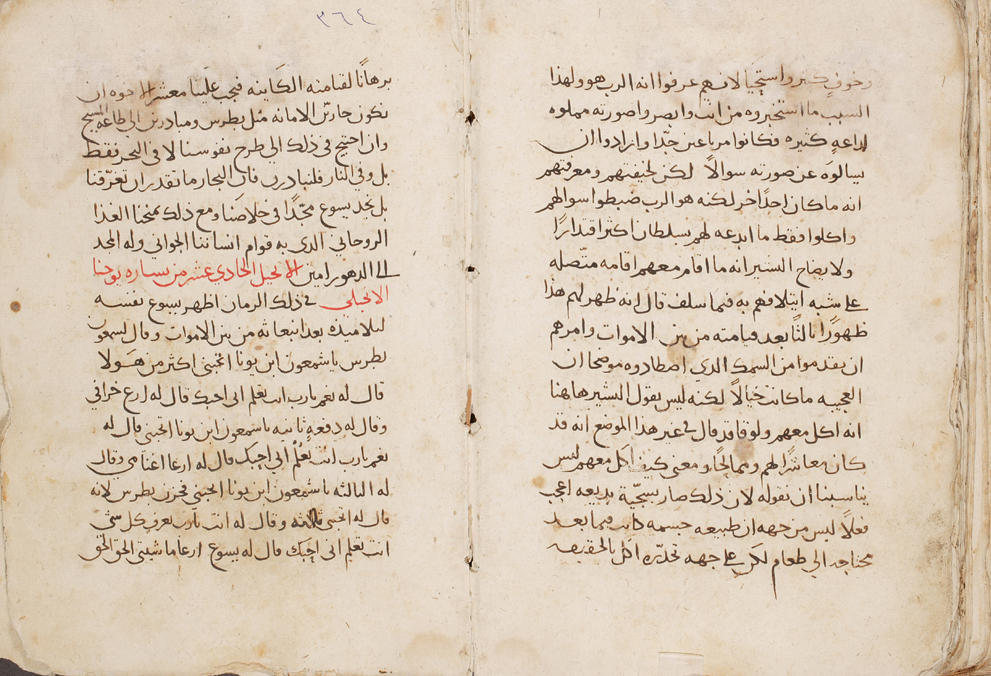 وخوفٍ كبير واستحيا لانهم عرفوا انه الرب هو ولهذا
السبب ما استخبروه من انت وابصروا صورته مملوه
لداعةٍ كثيره فكانوا مرتاعين جدًا وارادوا ان
يسالوه عن صورته سوالاً لكن لخيفتهم ومعرفتهم
انه ما كان احدًا اخر لكنه هو الرب ضبطوا سوالهم
واكلوا فقط ما ابدعه لهم بسلطان اكثر اقتدارًا
ولايضاح البشير انه ما اقام معهم اقامه متصله
على شبه ايتلافهم به فيما سلف قال انه ظهر لهم هذا
ظهورًا ثالثًا بعد قيامته من بين الاموات وامرهم
ان يقدموا من السمك الذي اصطادوه موضحا ان
العجيبه ما كانت خيالاً لكنه ليس يقول البشير هاهنا
انه اكل معهم ولوقا قد قال في غير هذا الموضع انه قد
كان معاشرًا لهم وممالحًا ومعنى كيف اكل معهم ليس
يناسبنا ان نقوله لان ذلك صار بسجيّة بديعه اعجب
فعلاً ليس من جهه ان طبيعه جسمه كانت فيما بعد
محتاجه الى طعام لكن على جهه تحدّره اكل بالحقيقه
٣٦٤
برهانًا لقيامته الكاينه فيجب علينا معشر الاخوه ان
نكون حارّين الامانه مثل بطرس ومبادرين الى طاعه المسيح
وان احتيج في ذلك الى طرح نفوسنا لا في البحر فقط
بل وفي النار فلنبادرن فان البحار ما تقدر ان تغرّقنا
بل نجد يسوع مجدًا في خلاصنا ومع ذلك يمنحنا الغذا
الروحاني الذي به قوام انساننا الجواني وله المجد
الى الدهور امين الانجيل الحادي عشر من بشاره يوحنا
الانجيلي في ذلك الزمان اظهر يسوع نفسه
لتلاميذه بعد انبعاثه من بين الاموات وقال لسمعون
بطرس يا شمعون ابن يونا اتحبني اكثر من هولا
قال له نعم يارب انت تعلم اني احبك قال له ارع خرافي
وقال له دفعةٍ ثانيه يا شمعون ابن يونا اتحبني قال له
نعم يارب انت تعلم اني احبك قال له ارعا اغنامي وقال
له الثالثه يا شمعون ابن يونا اتحبني فحزن بطرس لانه
قال له اتحبني ثالثه وقال له انت يارب تعرف كل شي
انت تعلم اني احبك قال له يسوع ارعا ماشيتي الحق الحق